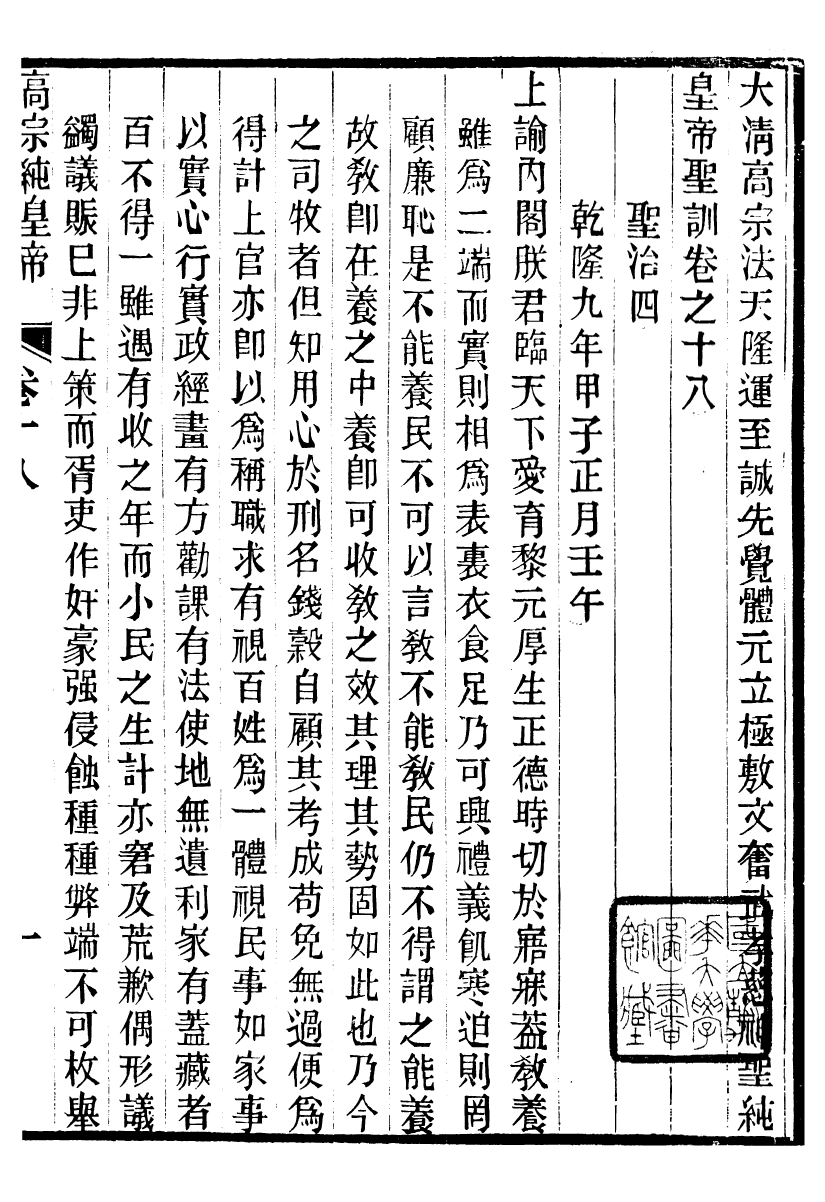 大淸高宗法天隆運至誠先覺體元立極敷文奮武孝慈神聖純
皇帝聖訓卷之十八
聖治四
乾隆九年甲子正月壬午
上諭內閣朕君臨天下愛育黎元厚生正德時切於寤寐葢敎養
雖爲二端而實則相爲表裏衣食足乃可興禮義飢寒迫則罔
顧廉恥是不能養民不可以言敎不能敎民仍不得謂之能養
故敎卽在養之中養卽可收敎之效其理其勢固如此也乃今
之司牧者但知用心於刑名錢穀自顧其考成苟免無過便爲
得計上官亦卽以爲稱職求有視百姓爲一體視民事如家事
以實心行實政經畫有方勸課有法使地無遺利家有蓋藏者
百不得一雖遇有收之年而小民之生計亦窘及荒歉偶形議
蠲議賑巳非上策而胥吏作奸豪强侵蝕種種弊端不可枚舉
高宗純皇帝 卷十八 一